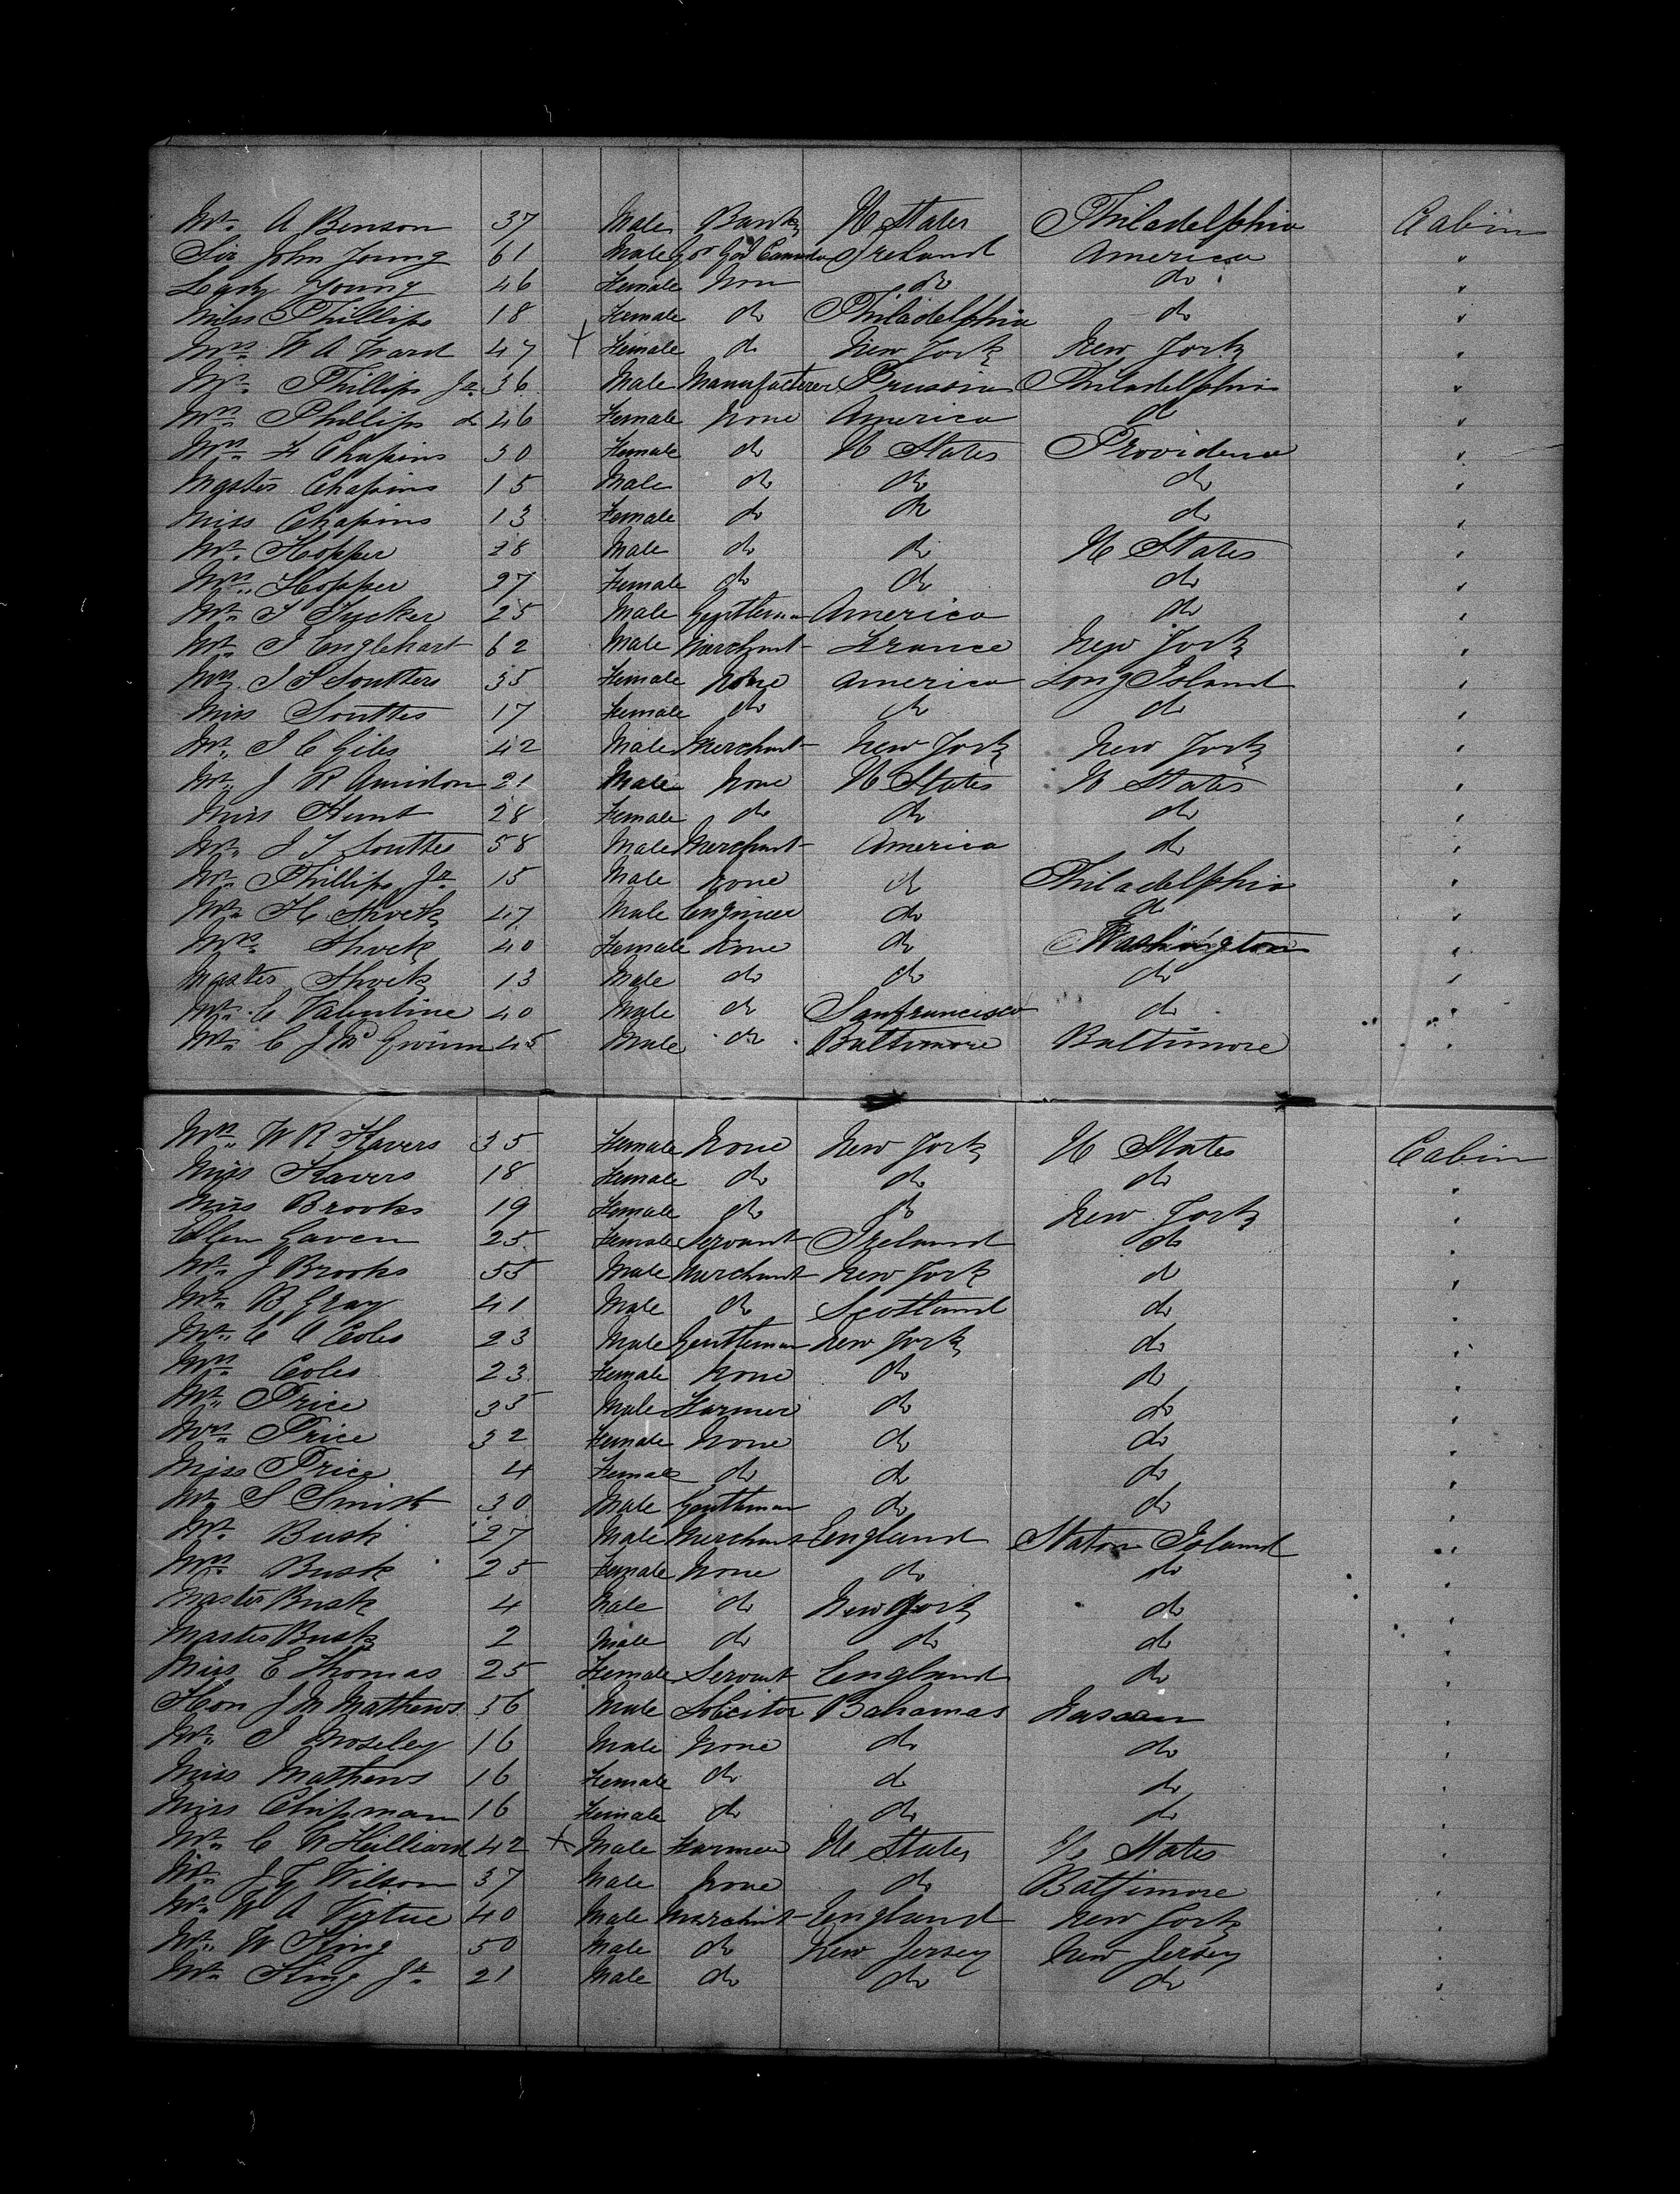 Mr. A Benson 37 Male Bank U States Philadelphia Cabin
Sir John Young 61 Male Gor Gen Canada Ireland America "
Lady Young 46 Female Non do do "
Miss Phillips 18 Female do Philadelphia do "
Mrs. W A Ward 47 X Female do New York New York "
Mr. Phillips Jr. 36 Male Manufacterer Prussia Philadelphia "
Mrs. Phillips do 46 Female None America do "
Mrs. F Chapins 30 Female do U States Providence "
Master Chapins 15 Male do do do "
Miss Chapins 13 Female do do do "
Mr. Hopper 28 Male do do U States "
Mrs. Hopper 27 Female do do do "
Mr. S Tucker 25 Male Gentleman America do "
Mr. J Englehart 62 Male Merchant France New York "
Mrs. J S Soutters 35 Female None America Long Island "
Miss Souttes 17 Female do do do "
Mr. J C Giles 42 Male Merchant New York New York "
Mr. J R Amidon 21 Male None U States U States "
Miss Hunt 28 Female do do do "
Mr. J T Souttes 58 Male Merchant America do "
Mr. Phillips Jr. 15 Male None do Philadelphia "
Mr. H. Shock 47 Male Engineer do do "
Mrs. Shock 40 Female None do Washington "
Master Shock 13 Male do do do "
Mr. E Valentine 40 Male do Sanfrancisco do "
Mr. C J Mc Gwinn 45 Male do Baltimore Baltimore "
Mrs. W R Havers 35 Female None New York U States Cabin
Miss Havers 18 Female do do do "
Miss Brooks 19 Female do do New York "
Ellen Gaven 25 Female Servant Ireland do "
Mr. J Brooks 55 Male Merchant New York do "
Mr. B Gray 41 Male do Scotland do "
Mr. C A Coles 23 Male Gentleman New York do "
Mrs. Coles 23 Female None do do "
Mr. Price 35 Male Farmer do do "
Mrs. Price 32 Female None do do "
Miss Price 4 Female do do do "
Mr. S Smith 30 Male Gentleman do do "
Mr. Busk 27 Male Merchant England Staton Island "
Mrs. Busk 25 Female None do do "
Master Busk 4 Male do New York do "
Master Busk 2 Male do do do "
Miss E Thomas 25 Female Servant England do "
Hon J M Mathews 56 Male Solicitor Bahamas Nassau "
Mr. J Moseley 16 Male None do do "
Miss Mathews 16 Female do do do "
Miss Chipman 16 Female do do do "
Mr. C W Hilliard 42 X Male Farmer U States U States "
Mr. J G Wilson 37 Male None do Baltimore "
Mr. W A Virtue 40 Male Merchant England New York "
Mr. W King 50 Male do New Jersey New Jersey "
Mr. King Jr. 21 Male do do do "